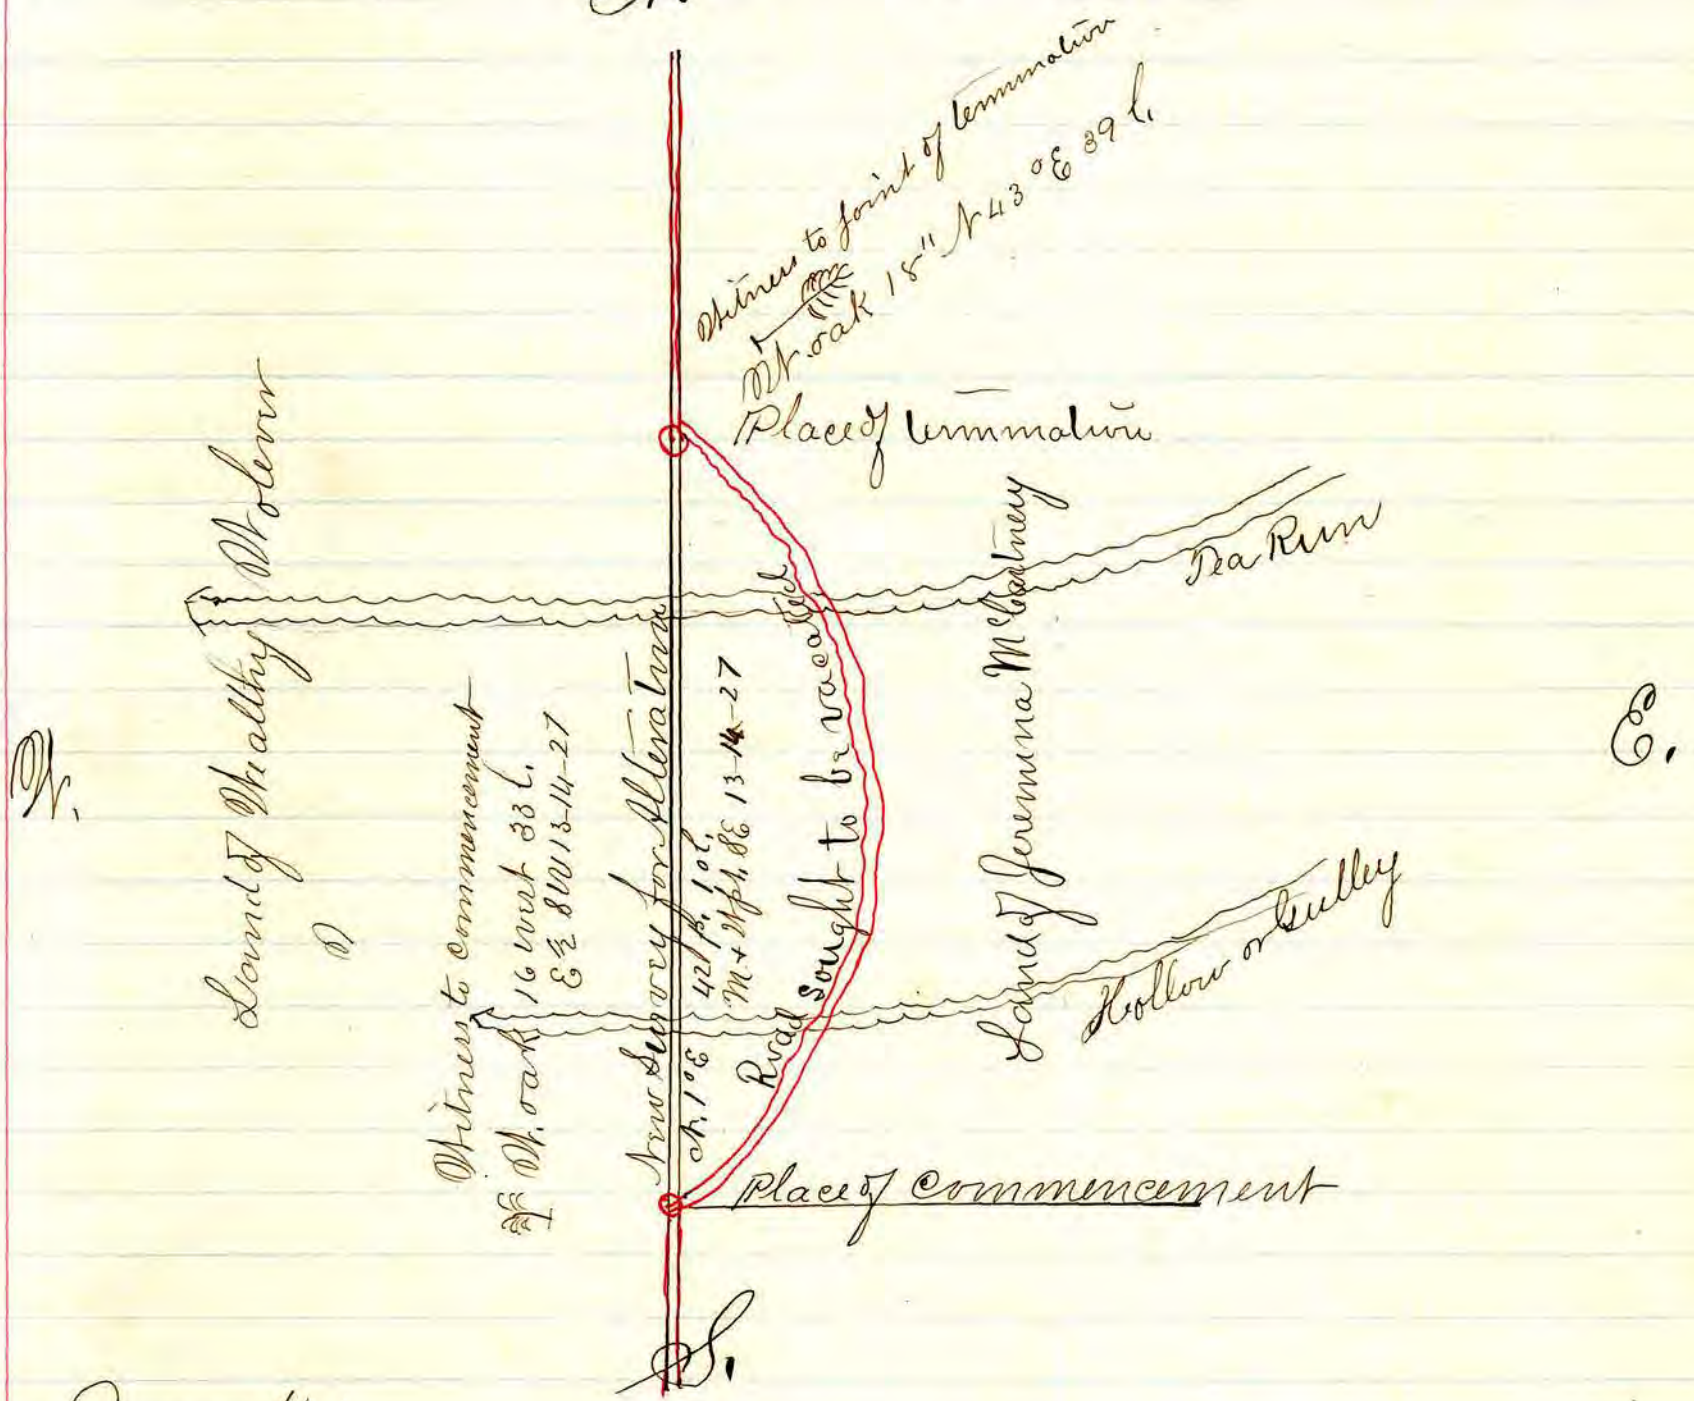 Witness to point of termination
W. oak 18" N 43 °E 39 l.
Place of termination
W.
Land of Wealthy Wolever
Witness to commencement
W. oak 16 west 33 l.
E ½ SW 13-14-27
New Survey for Alteration
N. 1° E 42 p. 10 l.
M. + Wph. SE 13-14-27
Road Sought to be vacated
Land of Jeremima McCartney
Pea Run
Hollow or Gulley
E.
Place of Commencement
S.